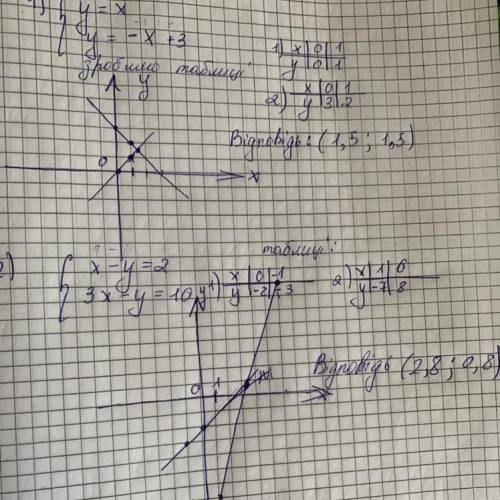 1) y = x
y = -x + 3
зробимо таблиці
1) x 0 1
y 0 1
2) x 0 1
y 3 2
y
0
x
Відповідь: (1,5; 1,5)
2) x - y = 2
3x - y = 10
таблиці:
1) x 0 -1
y -2 -3
2) x 1 6
y -7 8
y
0 1
x
Відповідь (2,8; 0,8)